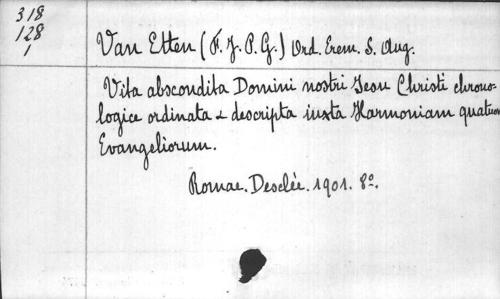 318
128
1
Van Etten (F. J. P. G.) Ord. Erem. S. Aug.
Vita abscondita Domini nostri Jesu Christi chrono-
logice ordinata & descripta iuxta Harmoniam quatuor
Evangeliorum.
Romae. Desclée. 1901. 8º.